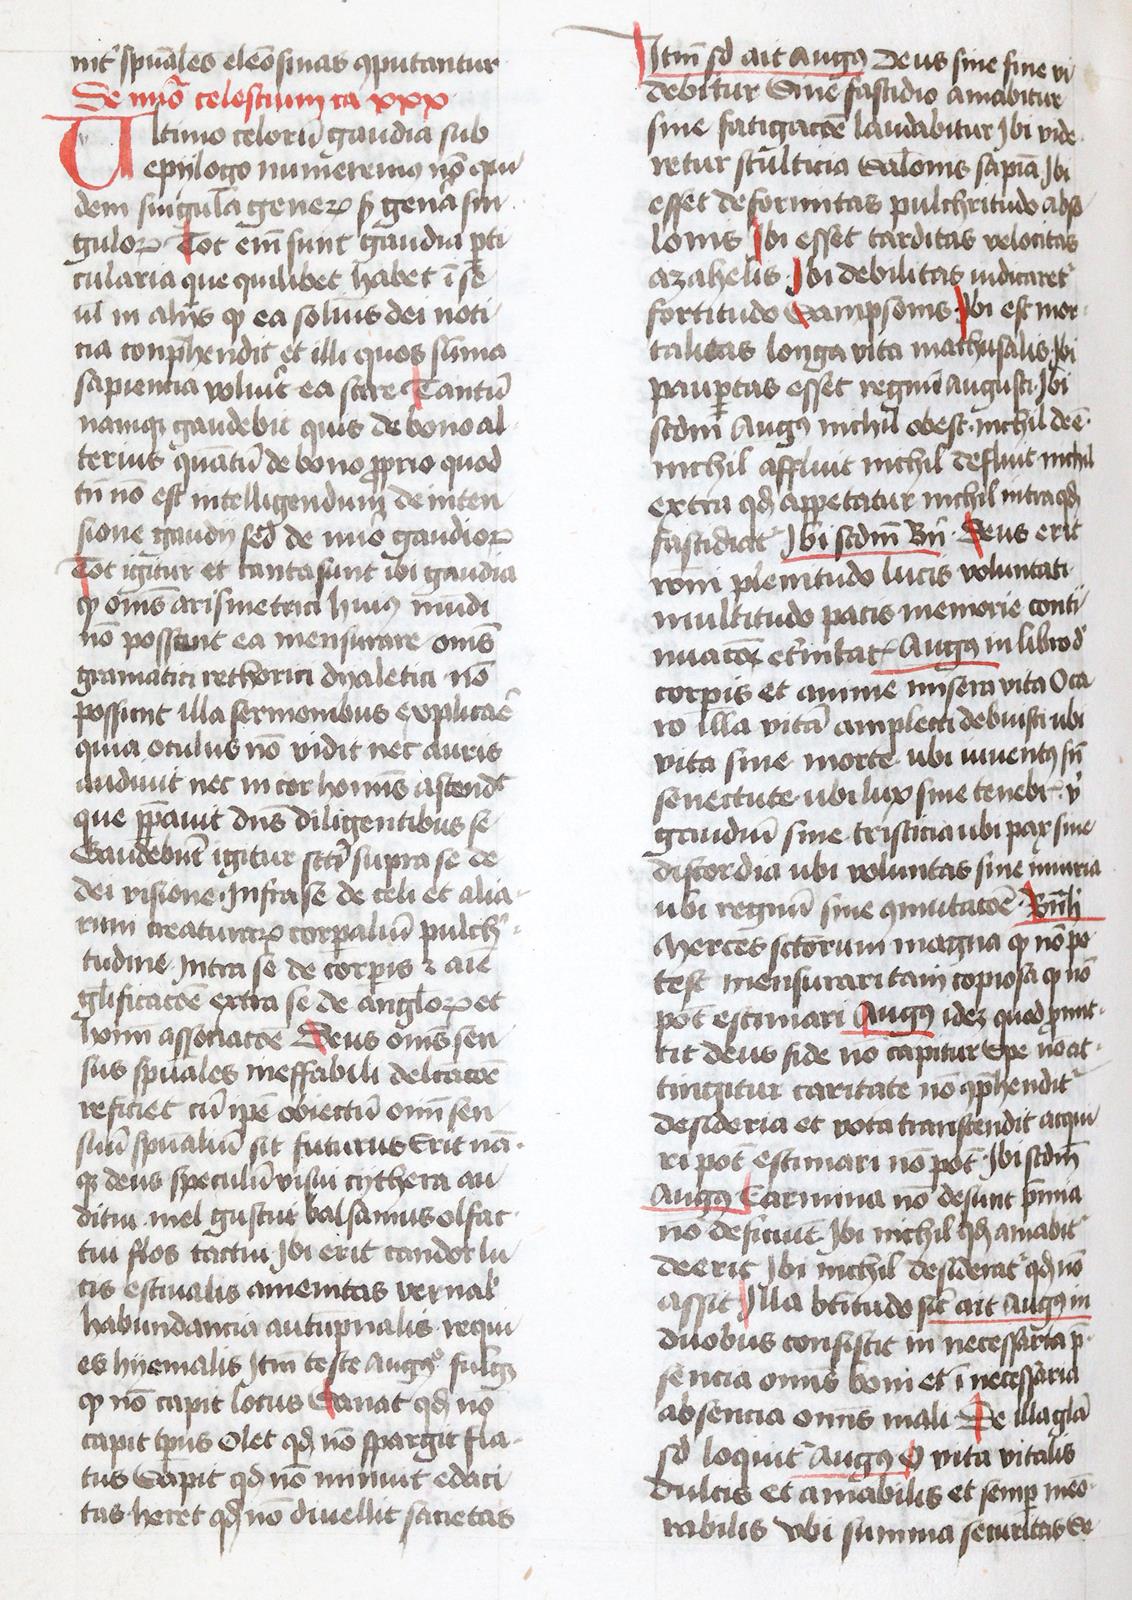 nt͛ spūales eleōsinas ꝯputantur
De nūo celestium ca xxx
Ultimo celorū gaudia sub
epylogo numeremus nō qui
dem singula generꝝ sꝫ gen̄a sin
gulorꝝ Tot em̄ sunt gaudia ꝑti
cularia que quilibet habet ī se
ul̄ in alijs ꝙ ea solius dei noti
cia conp̄hendit et illi quos sūma
sapiencia voluīt ea scire Tantū
namqꝫ gaudebit quis de bono al
terius quātū de bono ꝓprio quod
tn̄ nō est intelligendum de inten
sione gaudij sed de nūo gaudiorꝝ
Tot igitur et tanta sunt ibi gaudia
ꝙ om̄s arismetrici huiꝰ mūdi
nō possent ea mensurare om̄s
gramatici rethorici dyaletici nō
possunt illa sermonibus explicare
quia oculus nō vidit nec auris
audiuit nec in cor hom̄is ascendit
que p̄parauit dn̄s diligentibus se
Gaudebūt igitur sctī supra se de
dei visione Infra se de celi et alia
rum creaturarꝝ corꝑalium pulch͛
tudine Intra se de corꝑis ⁊ aīe
glīficacōe extra se de anglorꝝ et
homī associacōe Deus om̄s sen
sus spūales ineffabili delc̄acōe
reficiet cū ip̄e obiectū om̄ sen
suū spūaliū sit futurus Erit nā
qꝫ deus speculū visui cythera au
ditui mel gustui balsamus olfac
tui flos tactui Ibi erit candor lu
cis estiualis amenitas vernal̛
habundancia autūpnalis requi
es hyemalis Itm̄ teste Augꝰ fulgꝫ
ꝙ nō capit locus Sonat qd̄ nō
capit tp̄us Olet qd̄ nō spargit fla
tus Sapit qd̄ nō minuit edaci
tas heret qd̄ nō diuellit sacietas
Itm̄ sd̄ ait Augꝰ Deus sine fine vi
debitur Sine fastidio amabitur
sine fatigacōe laudabitur Ibi vide
retur stulticia Salomis sapīa Ibi
esset deformitas pulchritudo absa
lonis Ibi esset tarditas velocitas
azahelis Ibi debilitas iudicaret͛
fortitudo Sampsonis Ibi est mor
talitas longa vita mathusalis Ibi
paupertas esset regnū Augusti Ibi
scdm̄ Augꝰ nichil obest nichil deē
nichil affluit nichil defluit nichil
extra qd̄ appetatur nichil intra qd̄
fastidiat͛ Ibi scdm̄ Bn̄ Deus erit
rōni plenitudo lucis voluntati
multitudo pacis memorie conti
nuacō et͛nitat Augꝰ in libro d͛
corꝑis et anime misera vita O ca
ro illa vitā amplecti debuisti ubi
vita sine morte ubi iuuentꝰ sn̄
senectute ubi lux sine tenebꝛ̄ vͥ
gaudiū sine tristicia ubi pax sine
discordia ubi voluntas sine iniuria
ubi regnū sine ꝯmutacōe Bn̄h
Merces sctōrum magna ꝙ nō po
test mensurari tam copiosa ꝙ nō
pōt estimari Augꝰ idē quod ꝓmit
tit deus fide nō capitur Spe nō at
tingitur caritate nō ꝯp̄hendit͛
desideria et vota transcendit acqui
ri pōt estimari nō pōt Ibi scdm̄
Augꝰ Carmina nō desunt p̄mia
nō deficiūt Ibi nichil qd̄ amabit͛
deerit Ibi nichil desiderat͛ qd̄ nō
assit Illa bt̄itudo sic̄ ait Augꝰ in
duobus consistit in necessaria p̄
sencia omnis boni et ī necessaria
absencia om̄is mali De illa gl̄a
sd̄ loquit͛ Augꝰ O vita vitalis
dulcis et amabilis et semꝑ meō
rabilis Vbi summa securitas Se